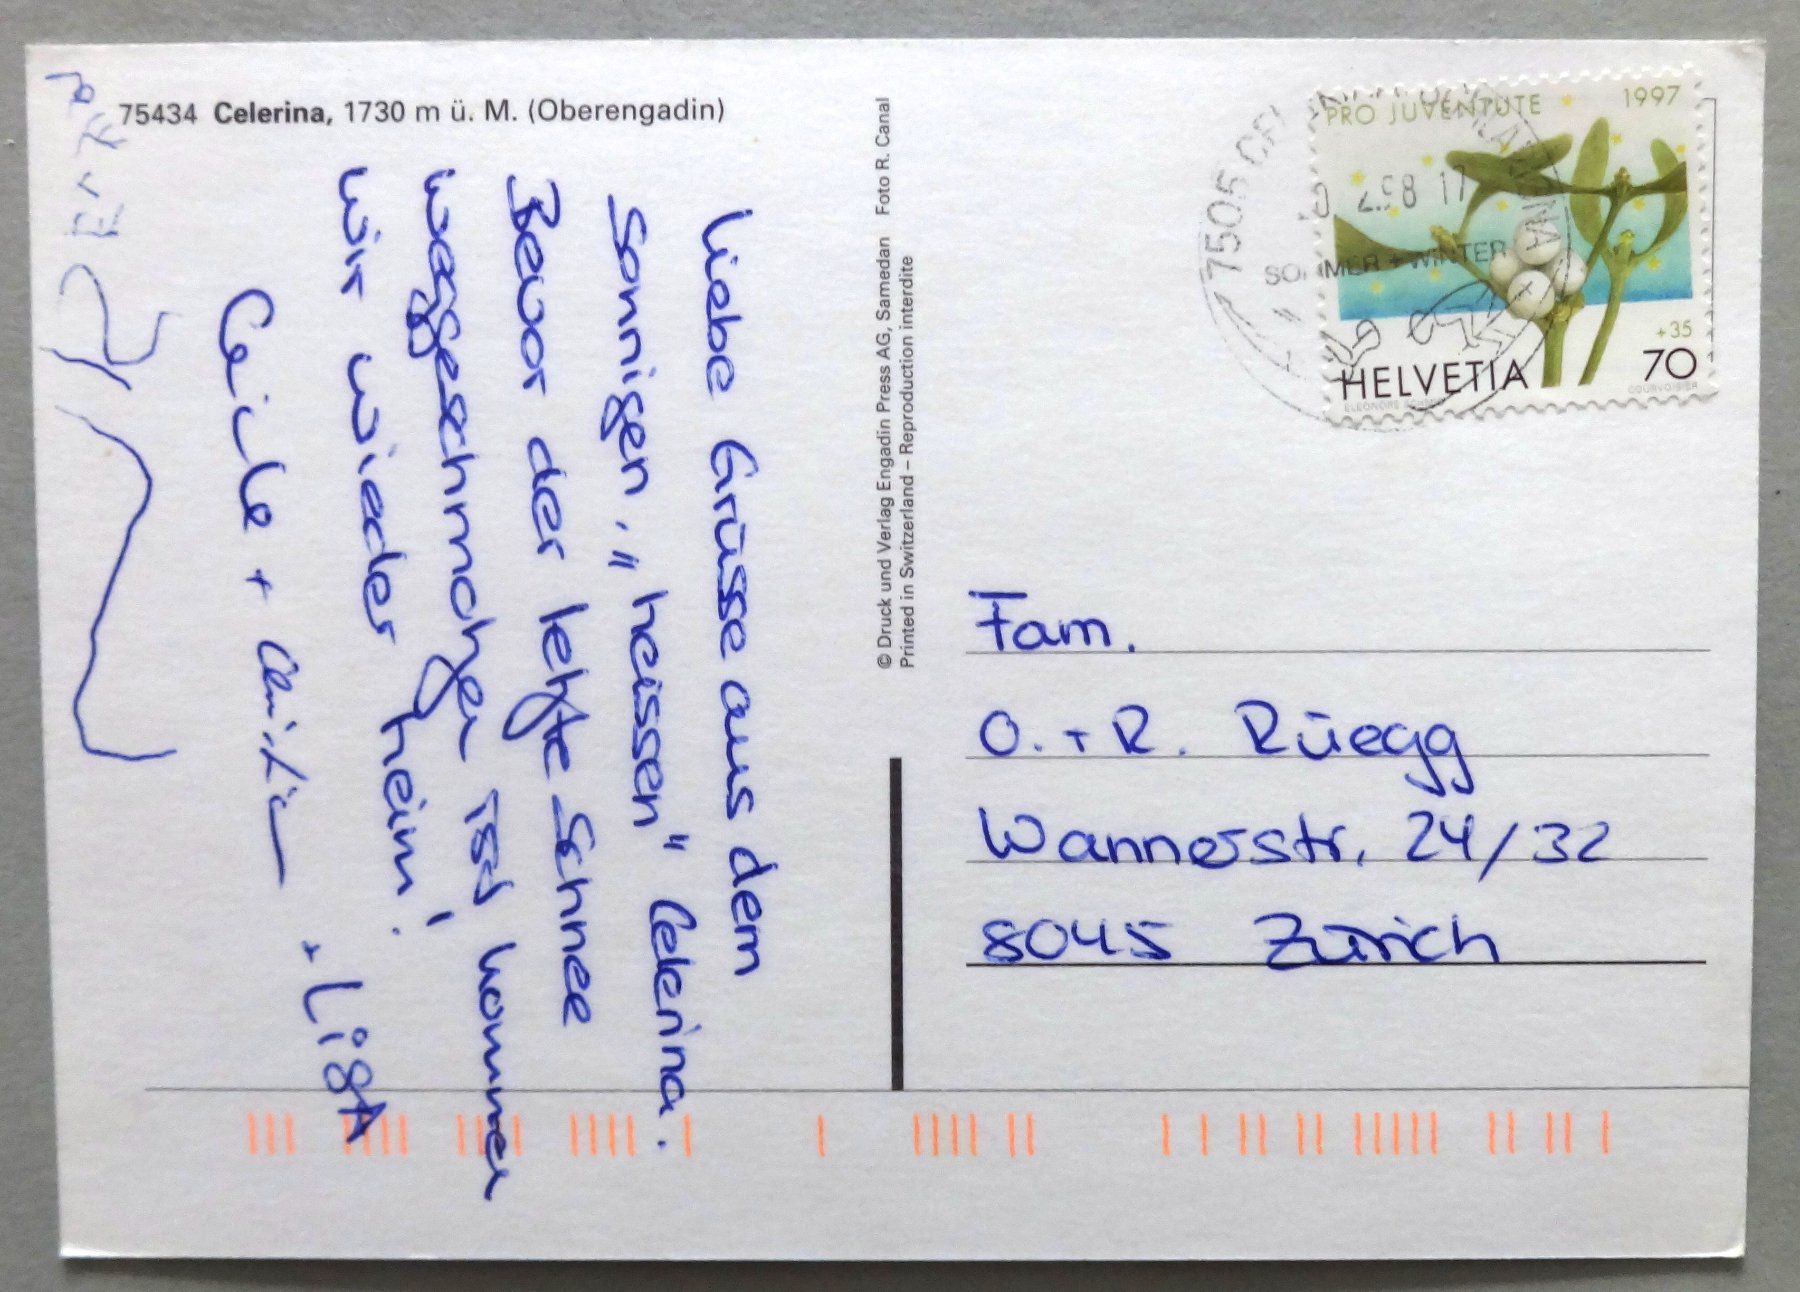 75434 Celerina, 1730 m ü. M. (Oberengadin)
Liebe Grüsse aus dem
sonnigen, "heissen" Celerina.
Bevor der letzte Schnee
weggeschmolzen ist kommen
wir wieder heim!
Cécile +
+ LiSA
© Druck und Verlag Engadin Press AG, Samedan Foto R. Canal
Printed in Switzerland – Reproduction interdite
PRO JUVENTUTE 1997
7505
2.98 17
SOMMER + WINTER
+35
70
HELVETIA
COURVOISIER
Fam.
O. + R. Rüegg
Wannerstr. 24/32
8045 Zürich